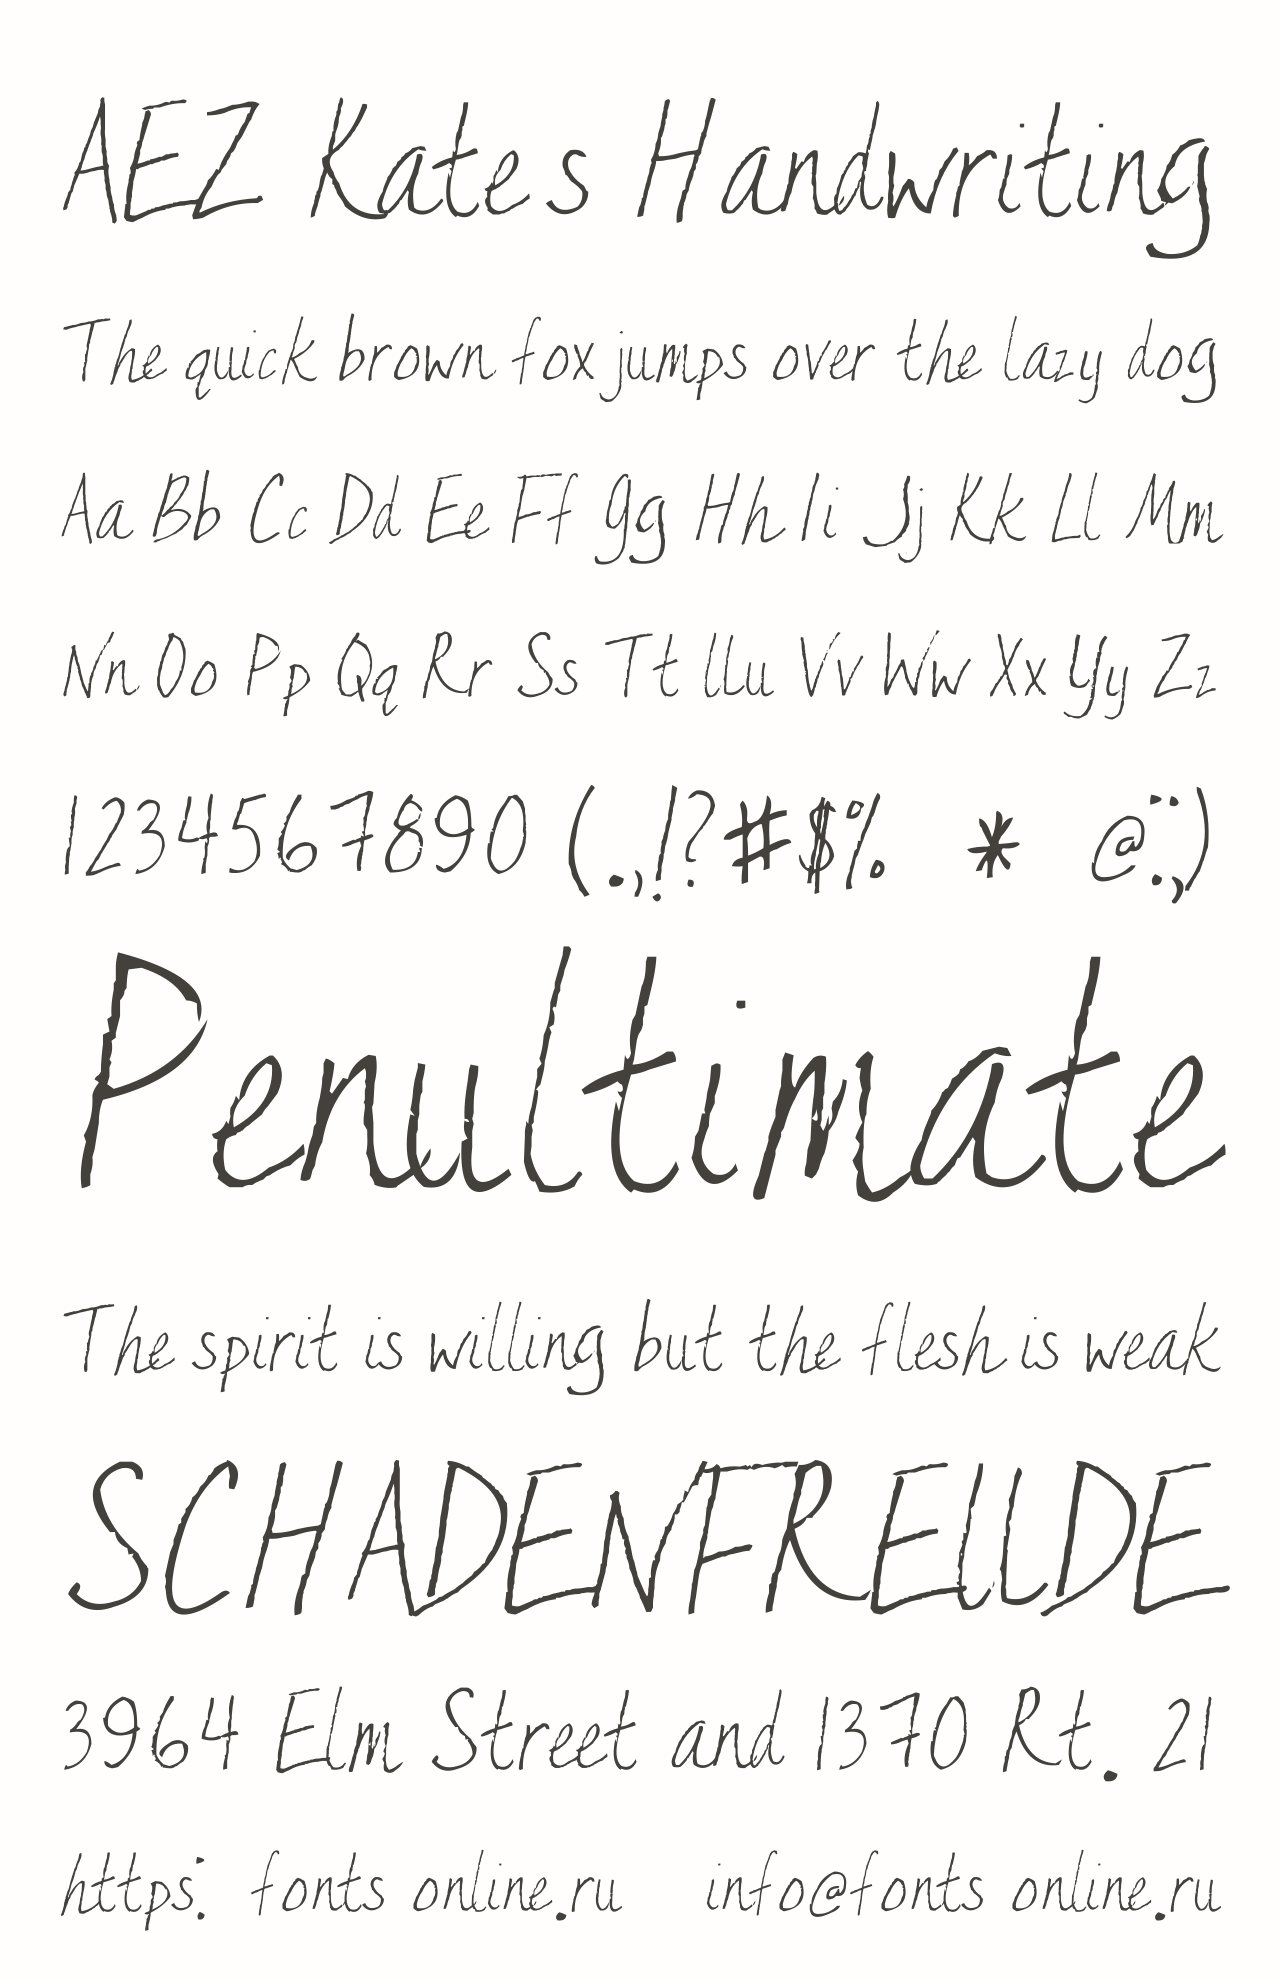 AEZ Kates Handwriting
The quick brown fox jumps over the lazy dog
Aa Bb Cc Dd Ee Ff Gg Hh Ii Jj Kk Ll Mm
Nn Oo Pp Qq Rr Ss Tt Uu Vv Ww Xx Yy Zz
1234567890 (.,!?#$% * @:;)
Penultimate
The spirit is willing but the flesh is weak
SCHADENFREUDE
3964 Elm Street and 1370 Rt. 21
https: fonts online.ru info@fonts online.ru